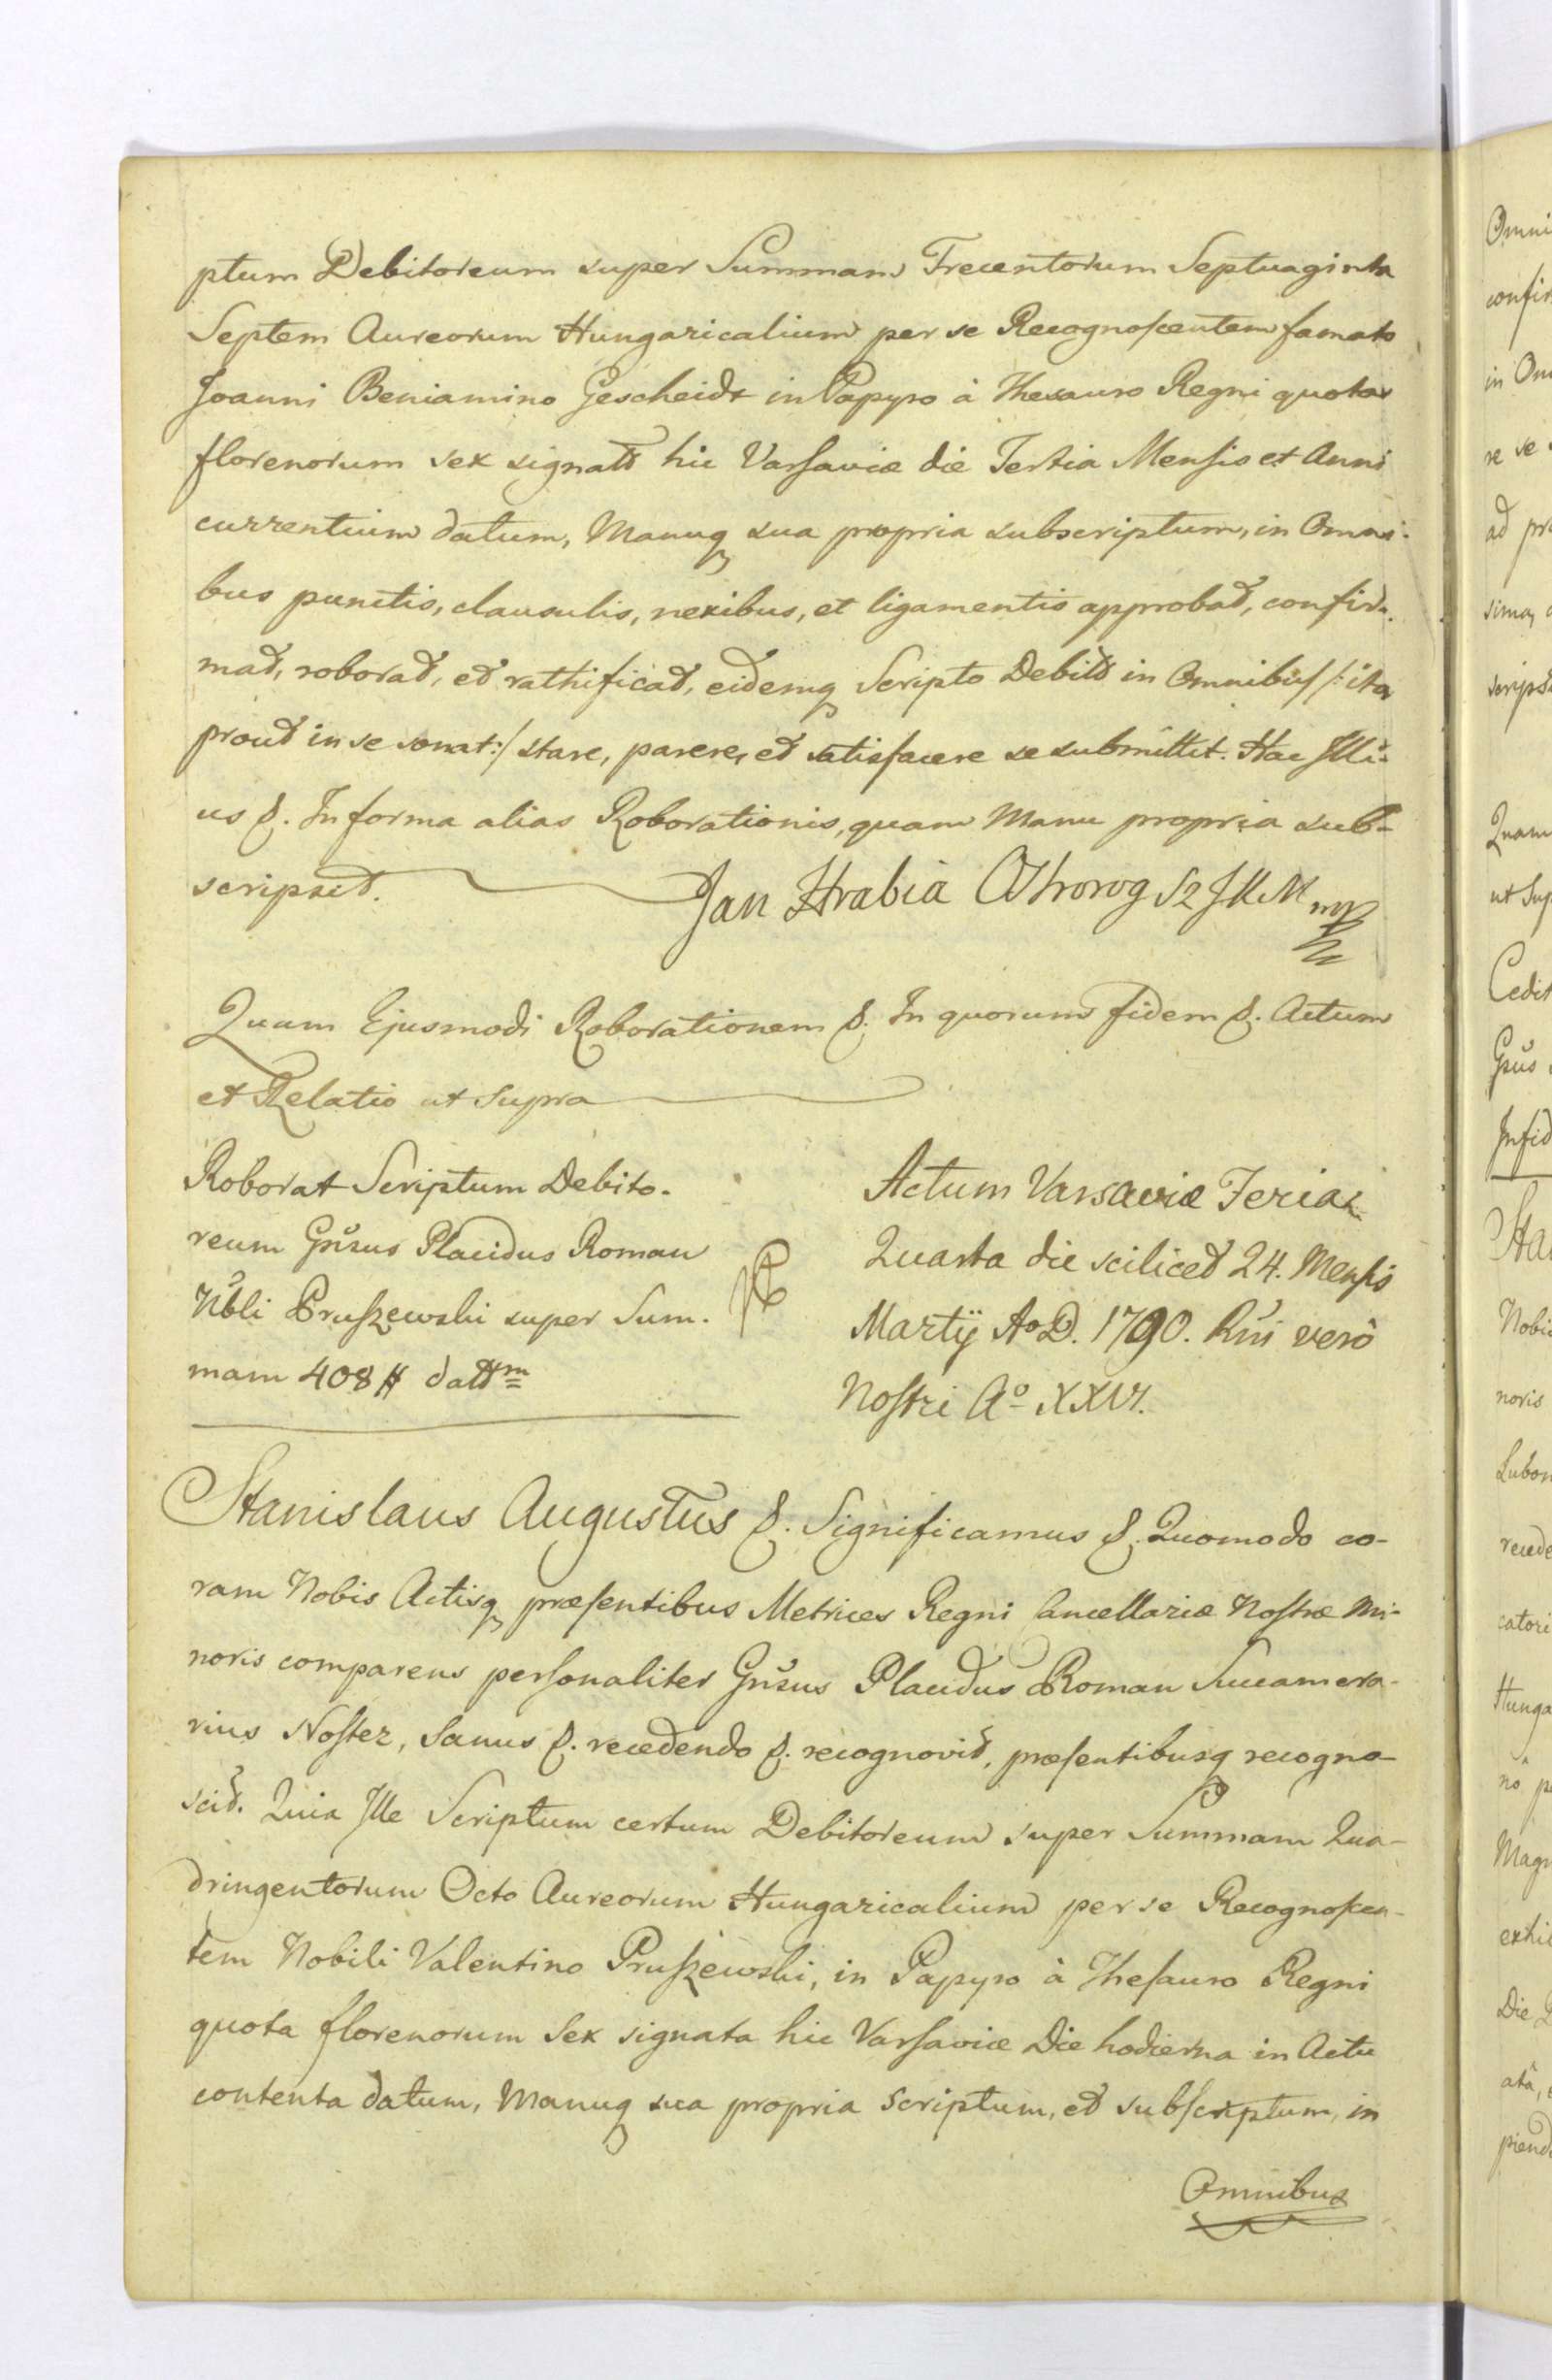 ptum Debitoreum super Summam Trecentorum Septuaginta
Septem Aureorum Hungaricalium per se Recognoscentem famato
Joanni Beniamino Gescheidt in Papyro à Thesauro Regni quota
florenorum sex signato hic Varsaviæ die Tertia Mensis et Anni
currentium datum, Manuq sua propria subscriptum, in Omni-
bus punctis, clausulis, nexibus, et ligamentis approbat, confir-
mat, roborat, et rathificat, eidemq Scripto Debito in Omnibus /: ita
prout in se sonat :/ stare, parere, et satisfacere se submittet. Hac Illi-
us &. In forma alias Roborationis, quam Manu propria sub-
scripsit.
Jan Hrabia Ostrorog SzJKM mp
Quam Ejusmodi Roborationem &. In quorum fidem &. Actum
et Relatio ut supra
Roborat Scriptum Debito-
reum Gnsus Placidus Roman
Nbli Pruszewski super Sum-
mam 408 # dattm
Actum Varsaviæ Feria
Quarta die scilicet 24. Mensis
Martij Ao D. 1790. Rni verò
Nostri Ao XXVI.
Stanislaus Augustus &. Significamus &. Quomodo co-
ram Nobis Actisq præsentibus Metrices Regni Cancellariæ Nostræ Mi-
noris comparens personaliter Gnsus Placidus Roman Succamera-
rius Noster, Sanus &. recedendo &. recognovit, præsentibusq recogno-
scit. Quia Ille Scriptum certum Debitoreum super Summam Qua-
dringentorum Octo Aureorum Hungaricalium per se Recognoscen-
tem Nobili Valentino Pruszewski, in Papyro à Thesauro Regni
quota florenorum Sex signata hic Varsaviæ Die hodierna in Actu
contenta datum, Manuq sua propria Scriptum, et subscriptum, in
Omnibus